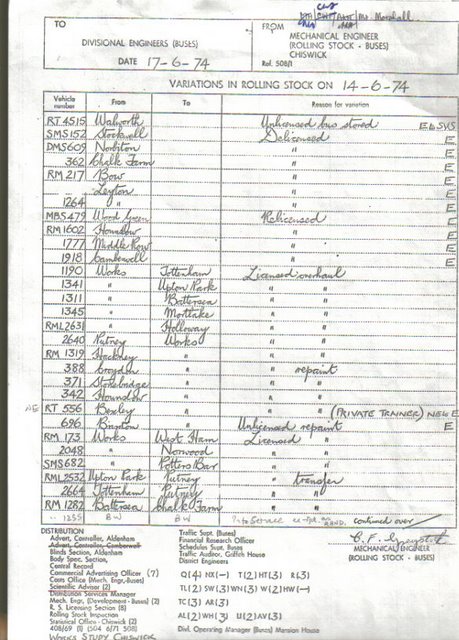 TO
FROM
Mr. Marshall
DIVISIONAL ENGINEERS (BUSES)
MECHANICAL ENGINEER
(ROLLING STOCK - BUSES)
CHISWICK
DATE 17-6-74
Ref. 508/1
VARIATIONS IN ROLLING STOCK ON 14-6-74
Vehicle number From To Reason for variation
RT 4515 Walworth Unlicensed bus stored E to SVS
SMS 152 Stockwell Delicensed E
DMS 609 Norbiton " E
362 Chalk Farm " E
RM 217 Bow " E
Leyton " E
1264 " " E
MBS 479 Wood Green Relicensed E
RM 1602 Hounslow " E
1777 Middle Row " E
1918 Camberwell " E
1190 Works Tottenham Licensed overhaul
1341 " Upton Park " "
1311 " Battersea " "
1345 " Mortlake " "
RML 2631 " Holloway " "
2640 Putney Works " "
RM 1319 Hackney " " "
388 Croydon " " repaint
371 Stonebridge " " "
342 Hounslow " " "
NE RT 556 Bexley " " " (PRIVATE TRAINER) NEW E
696 Brixton " Unlicensed repaint E
RM 173 Works West Ham Licensed "
2048 " Norwood " "
SMS 682 " Potters Bar " "
RML 2532 Upton Park Putney " transfer
2664 Tottenham Putney " "
RM 1282 Battersea Chalk Farm " "
1255 BW BW Into Service continued over
DISTRIBUTION
Advert. Controller, Aldenham
Advert. Controller, Camberwell
Blinds Section, Aldenham
Body Spec. Section,
Central Record
Commercial Advertising Officer (7)
Costs Office (Mech. Engr-Buses)
Scientific Advisor (2)
Distribution Services Manager
Mech. Engr. (Development - Buses) (2)
R. S. Licensing Section (8)
Rolling Stock Inspection
Statistical Office - Chiswick (2)
408/69 (1) 504 6/71 508)
WORKS STUDY CHISWICK
Traffic Supt. (Buses)
Financial Research Officer
Schedules Supt. Buses
Traffic Auditor, Griffith House
District Engineers
Q(4) NX(-) T(2) HT(3) R(3)
TL(2) SW(3) WN(3) W(2) HW(-)
TC(3) AR(3)
AL(2) WH(3) U(2) AV(3)
Divl. Operating Manager (Buses) Mansion House
MECHANICAL ENGINEER
(ROLLING STOCK - BUSES)